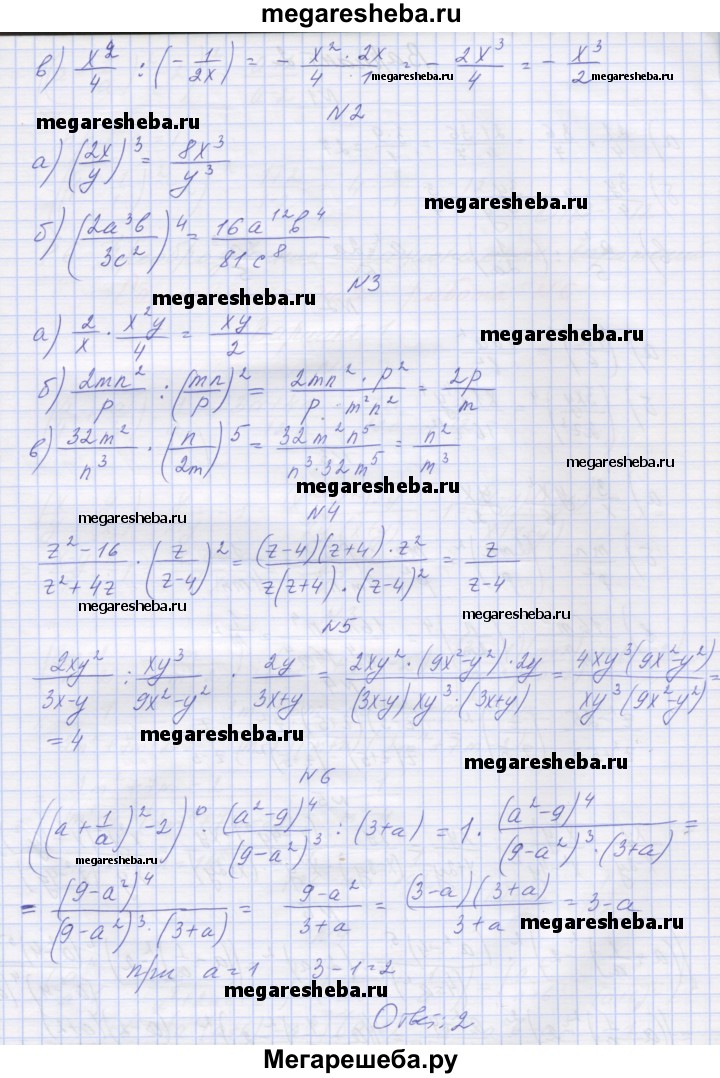 megaresheba.ru
в) x²/4 : (-1/2x) = - x²·2x/4·1 = - 2x³/4 = - x³/2
megaresheba.ru megaresheba.ru
megaresheba.ru
N2
а) (2x/y)³ = 8x³/y³
megaresheba.ru
б) (2a³b/3c²)⁴ = 16a¹²b⁴/81c⁸
N3
megaresheba.ru
а) 2/x · x²y/4 = xy/2
megaresheba.ru
б) 2mn²/p : (mn/p)² = 2mn²·p²/p·m²n² = 2p/m
в) 32m²/n³ · (n/2m)⁵ = 32m²n⁵/n³·32m⁵ = n²/m³
megaresheba.ru
megaresheba.ru
N4
megaresheba.ru
z²-16/z²+4z · (z/z-4)² = (z-4)(z+4)·z²/z(z+4)·(z-4)² = z/z-4
megaresheba.ru
megaresheba.ru
N5
2xy²/3x-y : xy³/9x²-y² · 2y/3x+y = 2xy²·(9x²-y²)·2y/(3x-y)xy³·(3x+y) = 4xy³(9x²-y²)/xy³(9x²-y²) =
= 4
megaresheba.ru
megaresheba.ru
N6
((a+1/a)²-2)⁰ · (a²-9)⁴/(9-a²)³ : (3+a) = 1· (a²-9)⁴/(9-a²)³·(3+a) =
megaresheba.ru
= (9-a²)⁴/(9-a²)³·(3+a) = 9-a²/3+a = (3-a)(3+a)/3+a = 3-a
megaresheba.ru
при a=1 3-1=2
megaresheba.ru
Ответ: 2
Мегарешеба.ру